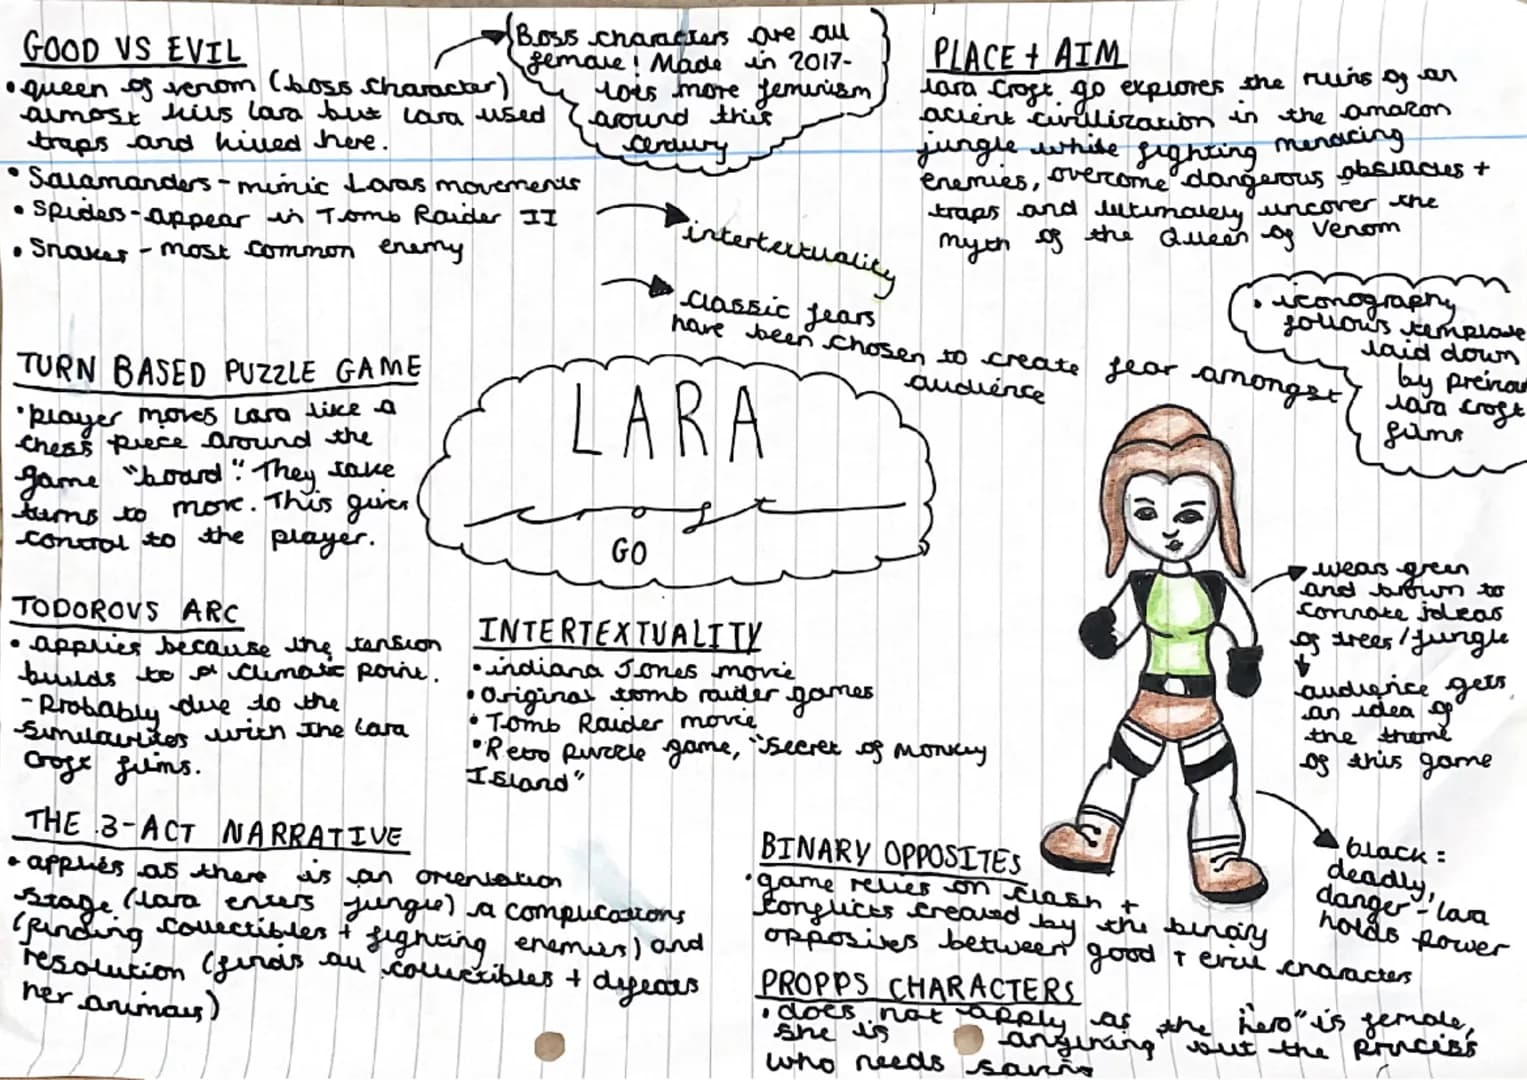 GOOD VS EVIL
• queen of venom (boss character)
almost kills Lara but Lara used
traps and killed here.
• Salamanders - mimic Laras movements
• Spiders - appear in Tomb Raider II
• Snakes - most common enemy
Boss characters are all
female! Made in 2017-
lots more feminism
around this
century
intertextuality
classic fears
have been chosen to create fear amongst
audience
PLACE + AIM
Lara Croft go explores the ruins of an
acient civilization in the amazon
jungle while fighting menacing
enemies, overcome dangerous obstacles +
traps and ultimately uncover the
myth of the Queen of Venom
• iconography
follows template
laid down
by previou
lara croft
films
TURN BASED PUZZLE GAME
• player moves Lara like a
chess piece around the
game "board". They take
turns to move. This gives
control to the player.
LARA
croft
GO
TODOROVS ARC
• applies because the tension
builds to a climatic point.
- Probably due to the
similarites with the Lara
Croft films.
INTERTEXTUALITY
• indiana Jones movie
• Original tomb raider games
• Tomb Raider movie
• Retro puzzle game, "Secret of Monkey
Island"
wears green
and brown to
connote ideas
of trees/jungle
audience gets
an idea of
the theme
of this game
black =
deadly,
danger - lara
holds power
THE 3-ACT NARRATIVE
• applies as there is an orientation
stage (lara enters jungle) a complications
(finding collectibles + fighting enemies) and
resolution (finds all collectibles + defeats
her animals)
BINARY OPPOSITES
• game relies on clash +
conflicts created by the binary
opposites between good + evil characters
PROPPS CHARACTERS
• does not apply as the "hero" is female,
she is anything but the princess
who needs saving